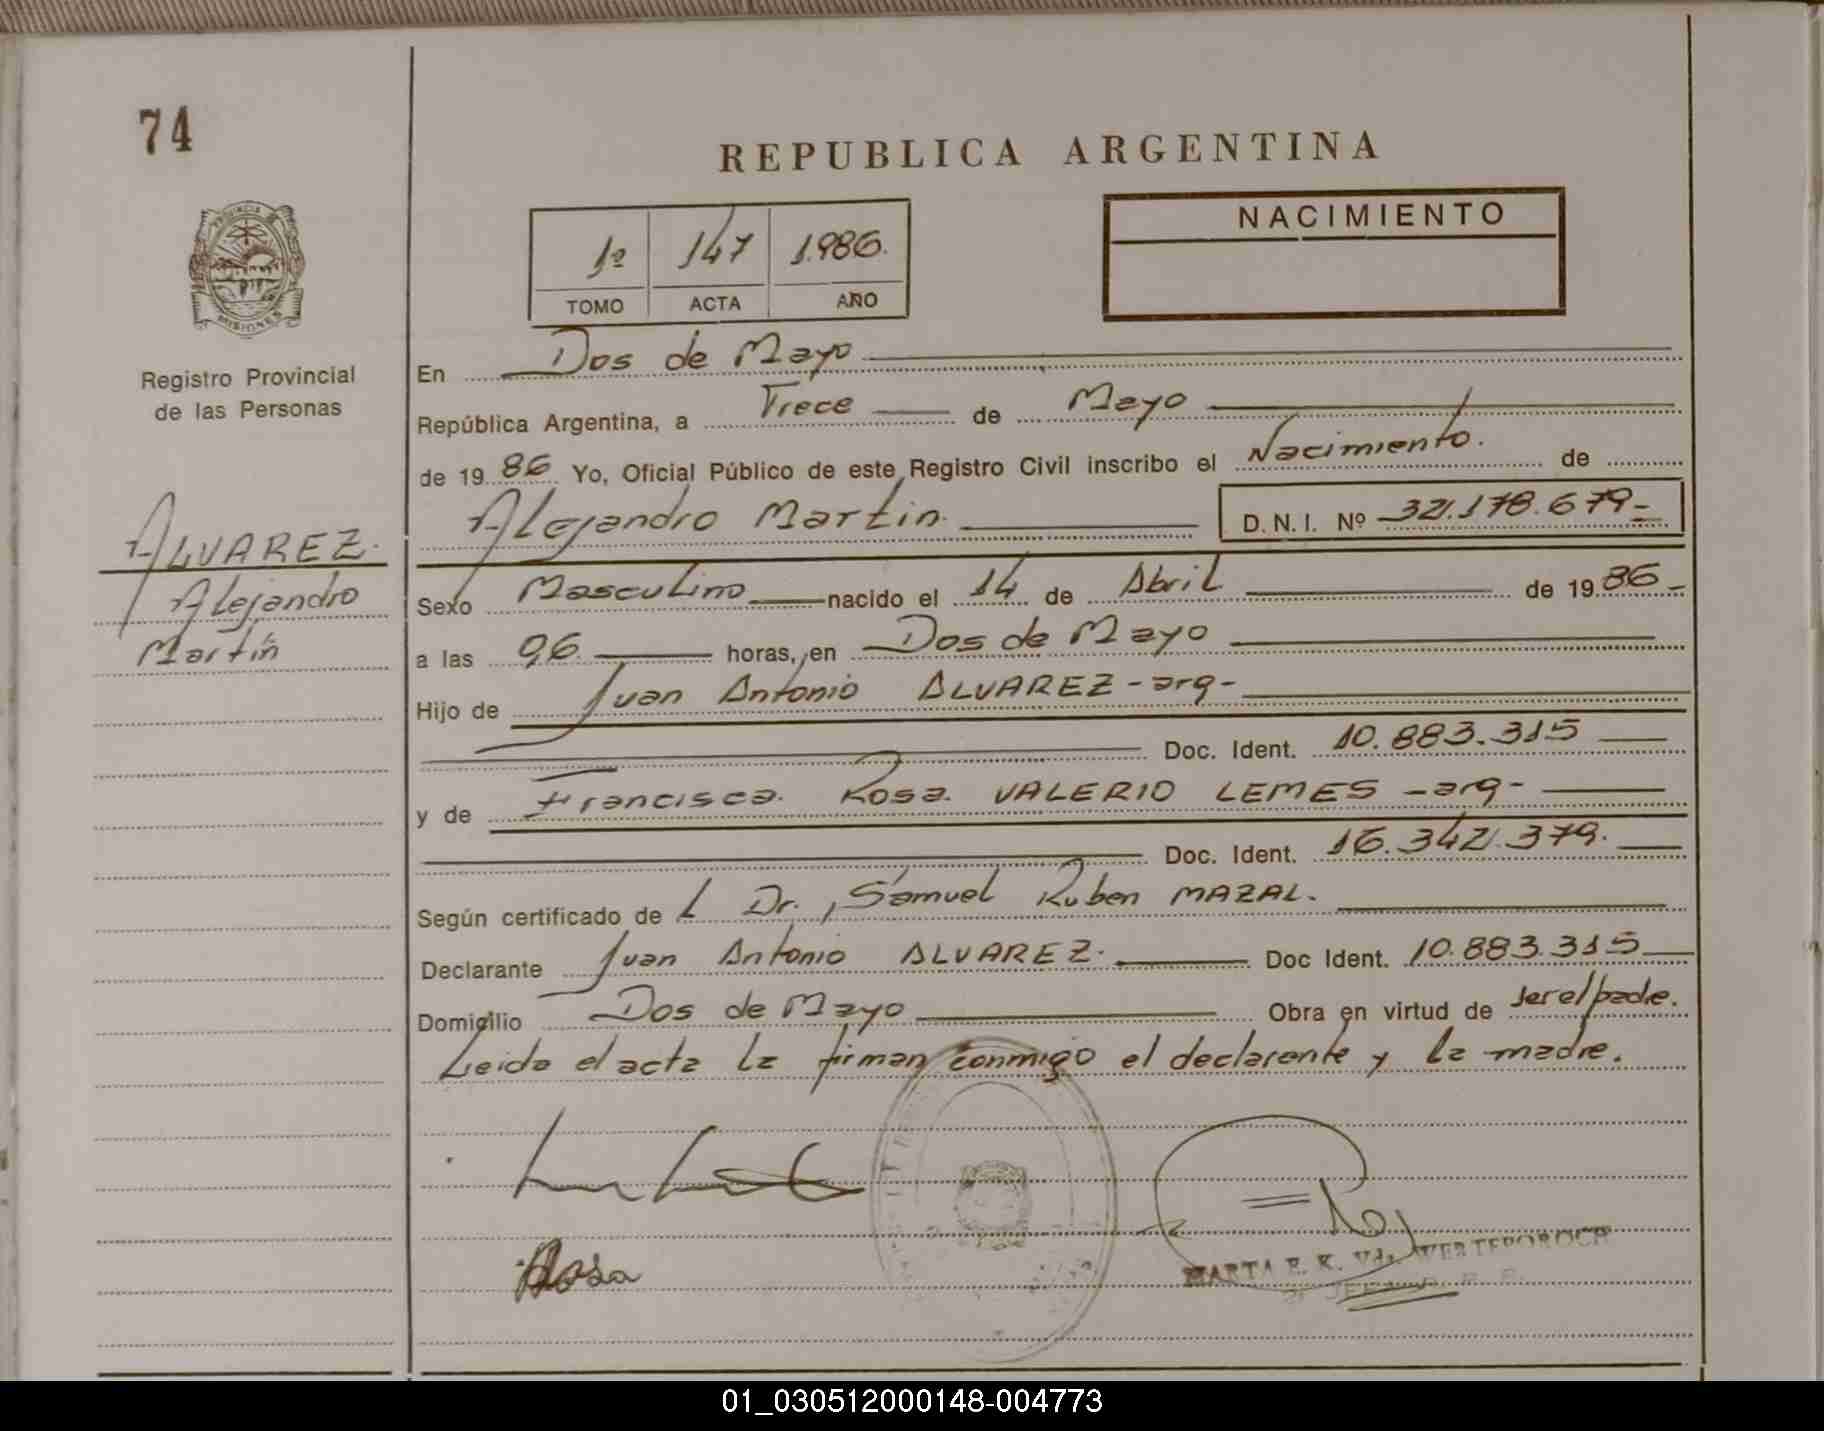 74
REPUBLICA ARGENTINA
NACIMIENTO
1º 147 1.986.
TOMO ACTA AÑO
PROVINCIA DE
MISIONES
Registro Provincial
de las Personas
ALVAREZ.
Alejandro
Martín
En Dos de Mayo
República Argentina, a Trece de Mayo
de 19 86 Yo, Oficial Público de este Registro Civil inscribo el Nacimiento. de
Alejandro Martin. D.N.I. Nº 32.178.679-
Sexo Masculino nacido el 14 de Abril de 19 86-
a las 06 horas, en Dos de Mayo
Hijo de Juan Antonio ALVAREZ - arg-
Doc. Ident. 10.883.315
y de Francisca. Rosa. VALERIO LEMES - arg-
Doc. Ident. 16.342.379.
Según certificado de L Dr., Samuel Ruben MAZAL.
Declarante Juan Antonio ALVAREZ. Doc Ident. 10.883.315
Domicilio Dos de Mayo Obra en virtud de ser el padre.
Leida el acta la firman conmigo el declarante y la madre.
Rosa
MARTA E. K. Vda. WERTEPOROCH
01_030512000148-004773